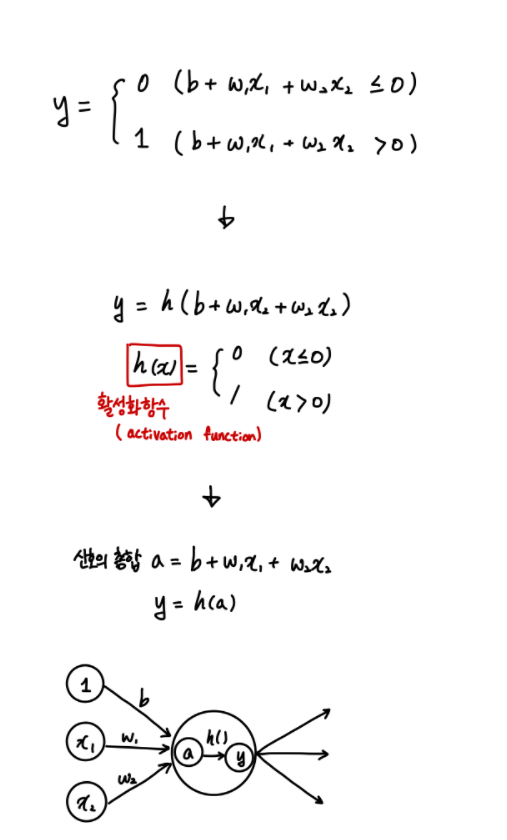 y = { 0 (b + w₁x₁ + w₂x₂ ≤ 0)
1 (b + w₁x₁ + w₂x₂ > 0)
↓
y = h(b + w₁x₂ + w₂x₂)
h(x) = { 0 (x ≤ 0)
1 (x > 0)
활성화함수
(activation function)
↓
신호의 총합 a = b + w₁x₁ + w₂x₂
y = h(a)
1 b
x₁ w₁ a h() y
x₂ w₂